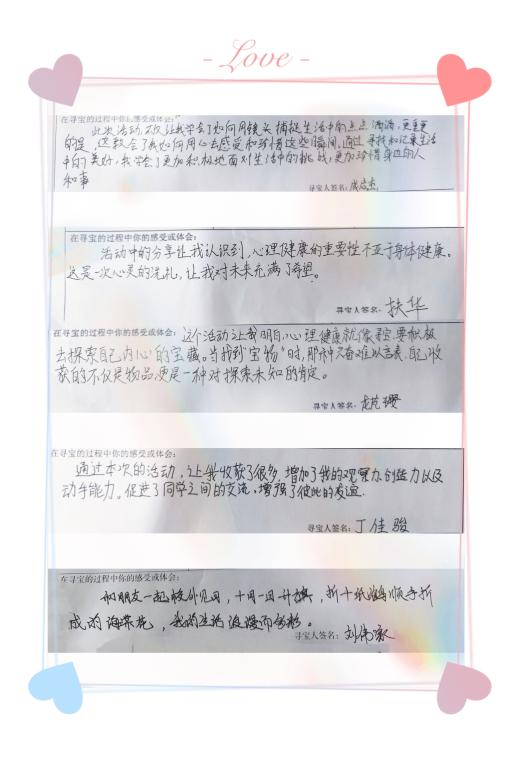 - Love -
在寻宝的过程中你的感受或体会：
此次活动，不仅让我学会了如何用镜头捕捉生活中的点点滴滴，更重要
的是，这教会了我如何用心去感受和珍惜这些瞬间。通过寻找和记录生活
中的美好，我学会了更加积极地面对生活中的挑战，更加珍惜身边的人
和事
寻宝人签名：
在寻宝的过程中你的感受或体会：
活动中的分享让我认识到，心理健康的重要性不亚于身体健康。
这是一次心灵的洗礼，让我对未来充满了希望。
寻宝人签名：扶华
在寻宝的过程中你的感受或体会：这个活动让我明白，心理健康就像寻宝，要积极
去探索自己内心的宝藏。当找到"宝物"时，那种兴奋难以言表，自己收
获的不仅是物品，更是一种对探索未知的肯定。
寻宝人签名：
在寻宝的过程中你的感受或体会：
通过本次的活动，让我收获了很多，增加了我的观察力，创造力以及
动手能力。促进了同学之间的交流，增强了彼此的友谊.
寻宝人签名：丁佳骏
在寻宝的过程中你的感受或体会：
和朋友一起，十月一日升旗，折千纸鹤顺手折
成的，我的生活浪漫而
寻宝人签名：